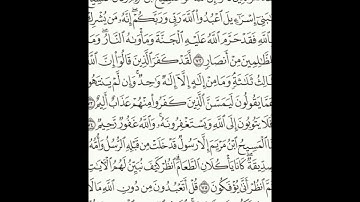 يَٰبَنِىٓ إِسْرَٰٓءِيلَ ٱعْبُدُوا۟ ٱللَّهَ رَبِّى وَرَبَّكُمْ إِنَّهُۥ مَن يُشْرِكْ
بِٱللَّهِ فَقَدْ حَرَّمَ ٱللَّهُ عَلَيْهِ ٱلْجَنَّةَ وَمَأْوَىٰهُ ٱلنَّارُ وَمَا
لِلظَّٰلِمِينَ مِنْ أَنصَارٍ ٧٢ لَّقَدْ كَفَرَ ٱلَّذِينَ قَالُوٓا۟ إِنَّ ٱللَّهَ
ثَالِثُ ثَلَٰثَةٍ وَمَا مِنْ إِلَٰهٍ إِلَّآ إِلَٰهٌ وَٰحِدٌ وَإِن لَّمْ يَنتَهُوا۟
عَمَّا يَقُولُونَ لَيَمَسَّنَّ ٱلَّذِينَ كَفَرُوا۟ مِنْهُمْ عَذَابٌ أَلِيمٌ ٧٣
أَفَلَا يَتُوبُونَ إِلَى ٱللَّهِ وَيَسْتَغْفِرُونَهُۥ وَٱللَّهُ غَفُورٌ رَّحِيمٌ ٧٤
مَّا ٱلْمَسِيحُ ٱبْنُ مَرْيَمَ إِلَّا رَسُولٌ قَدْ خَلَتْ مِن قَبْلِهِ ٱلرُّسُلُ وَأُمُّهُۥ
صِدِّيقَةٌ كَانَا يَأْكُلَانِ ٱلطَّعَامَ ٱنظُرْ كَيْفَ نُبَيِّنُ لَهُمُ ٱلْءَايَٰتِ
ثُمَّ ٱنظُرْ أَنَّىٰ يُؤْفَكُونَ ٧٥ قُلْ أَتَعْبُدُونَ مِن دُونِ ٱللَّهِ مَا لَا